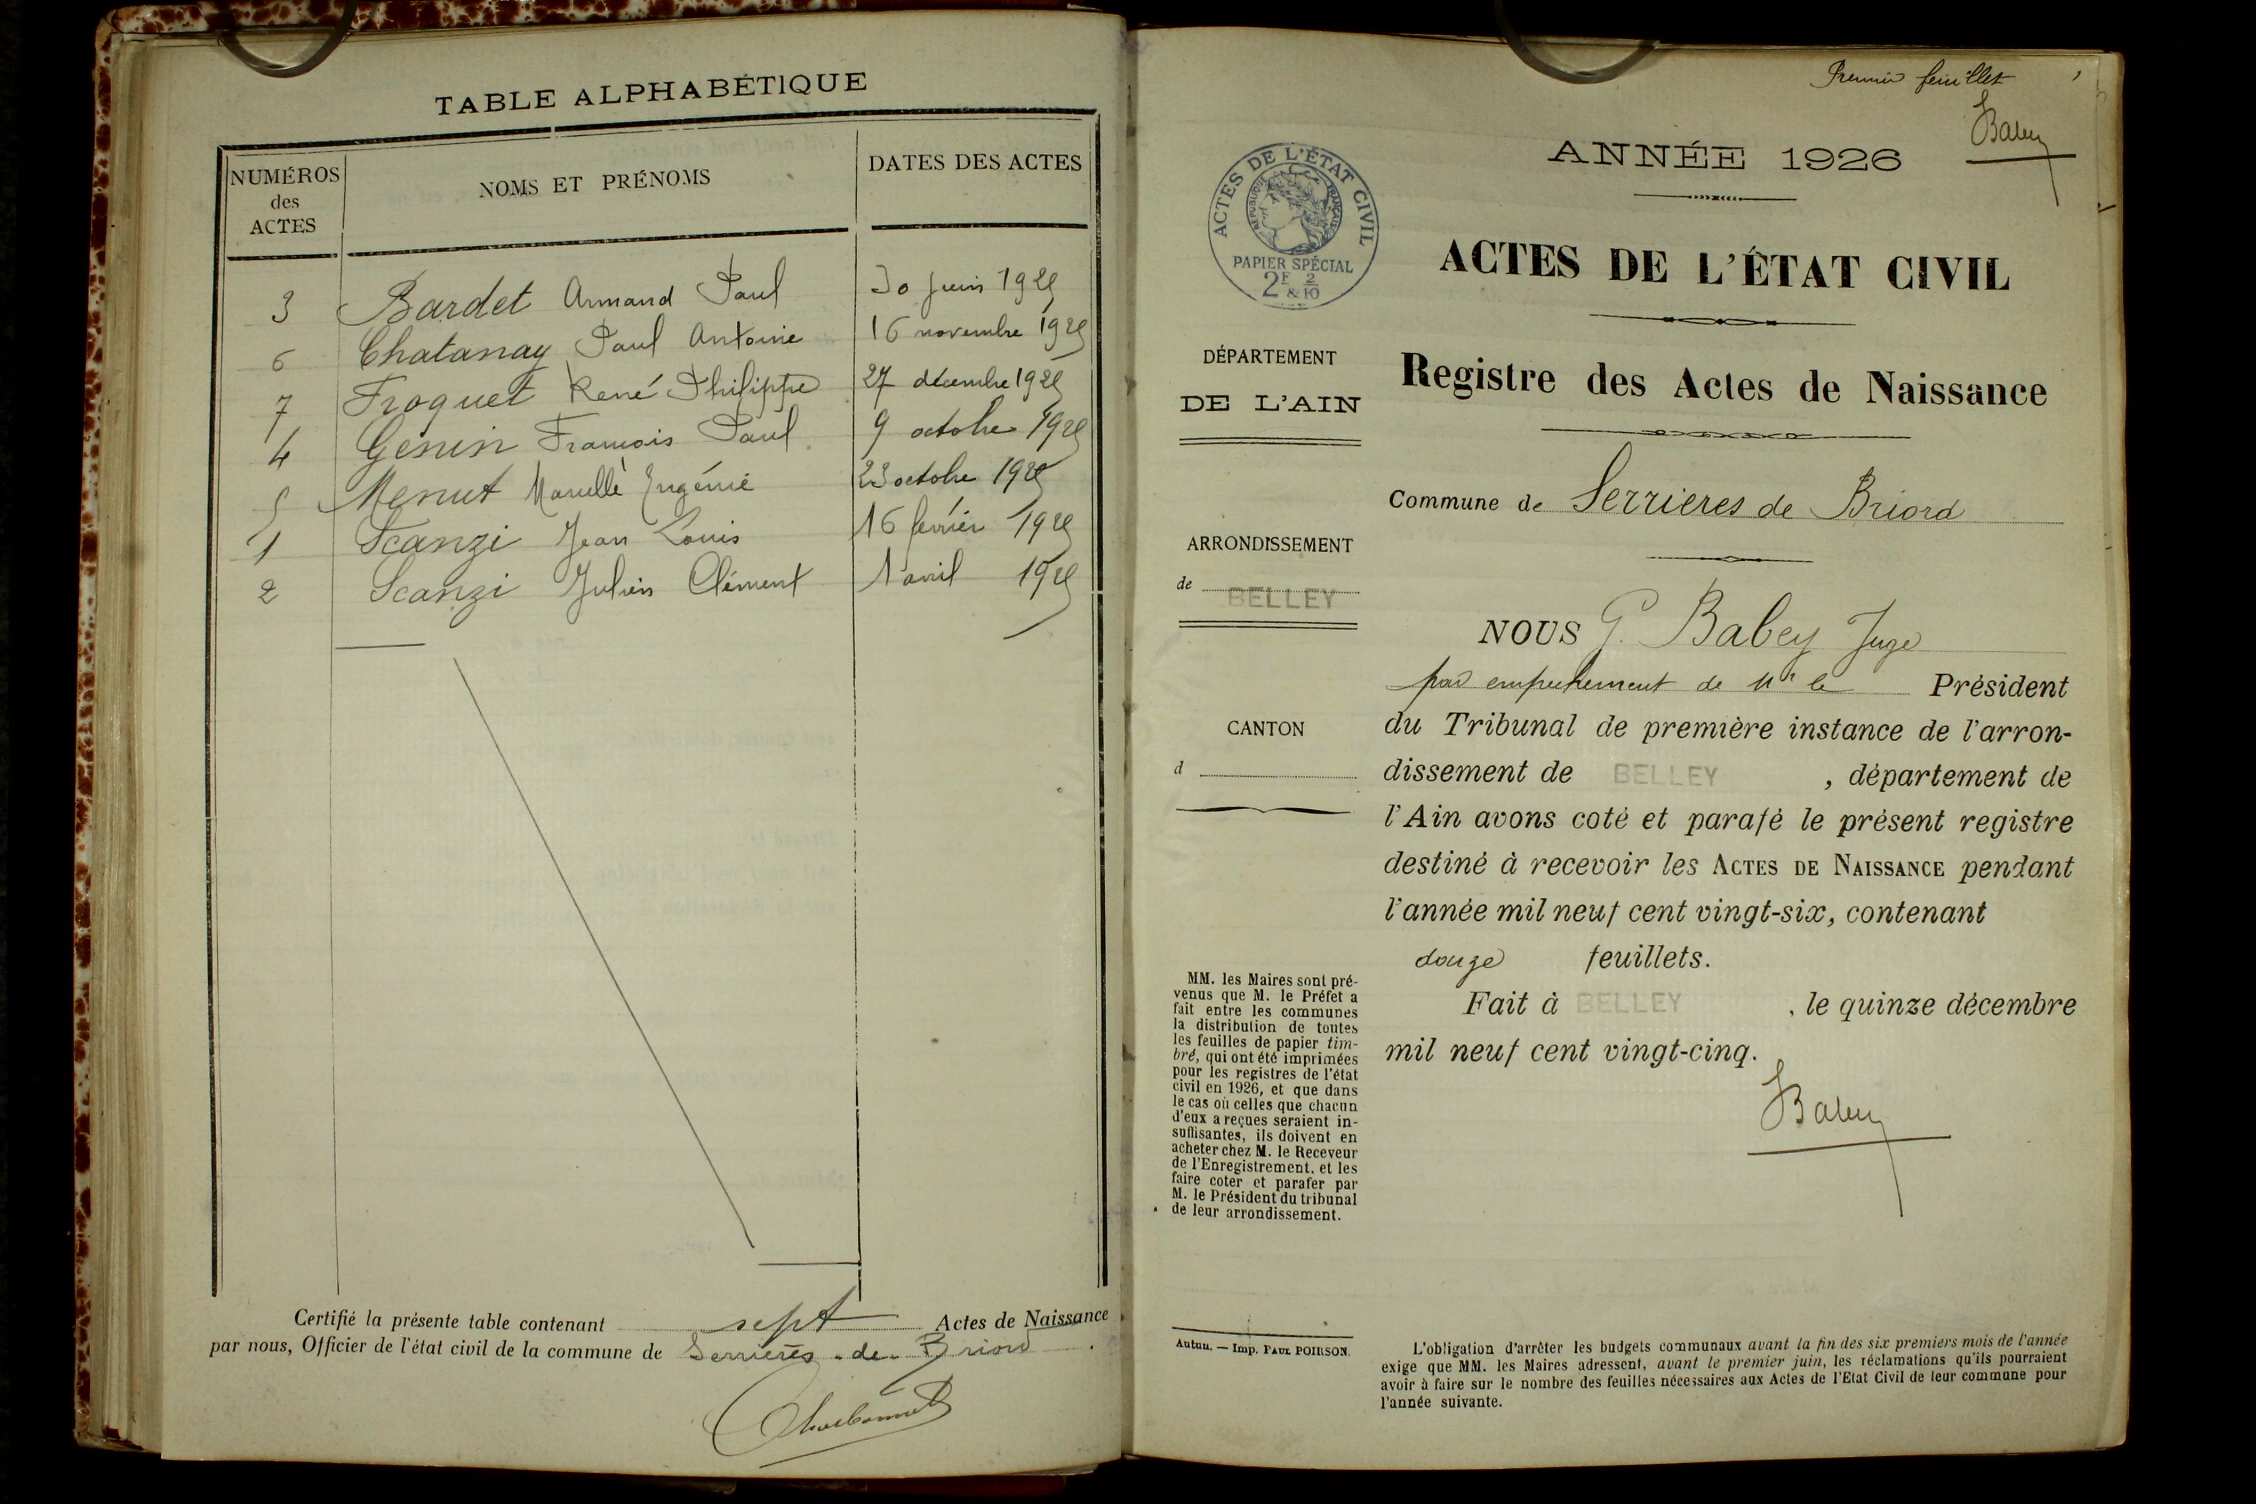 TABLE ALPHABÉTIQUE
NUMÉROS des ACTES
NOMS ET PRÉNOMS
DATES DES ACTES
3 Bardet Armand Paul 30 juin 1925
6 Chatanay Paul Antoine 16 novembre 1925
7 Froquet René Philippe 27 décembre 1925
4 Genin François Paul 9 octobre 1925
5 Menut Marcelle Eugénie 23 octobre 1925
1 Scanzi Jean Louis 16 février 1925
2 Scanzi Julien Clément 1 avril 1925
Certifié la présente table contenant sept Actes de Naissance
par nous, Officier de l'état civil de la commune de Serrières-de-Briord
Premier feuillet
Babey
ANNÉE 1926
ACTES DE L'ÉTAT CIVIL
RÉPUBLIQUE FRANÇAISE
PAPIER SPÉCIAL
2F & 2/10
ACTES DE L'ÉTAT CIVIL
Registre des Actes de Naissance
DÉPARTEMENT
DE L'AIN
Commune de Serrieres de Briord
ARRONDISSEMENT
de BELLEY
CANTON
d
NOUS G. Babey Juge
par empechement de Mr le Président
du Tribunal de première instance de l'arron-
dissement de BELLEY, département de
l'Ain avons coté et parafé le présent registre
destiné à recevoir les ACTES DE NAISSANCE pendant
l'année mil neuf cent vingt-six, contenant
douze feuillets.
Fait à BELLEY, le quinze décembre
mil neuf cent vingt-cinq.
Babey
MM. les Maires sont pré-
venus que M. le Préfet a
fait entre les communes
la distribution de toutes
les feuilles de papier tim-
bré, qui ont été imprimées
pour les registres de l'état
civil en 1926, et que dans
le cas où celles que chacun
d'eux a reçues seraient in-
suffisantes, ils doivent en
acheter chez M. le Receveur
de l'Enregistrement, et les
faire coter et parafer par
M. le Président du tribunal
de leur arrondissement.
Autun. — Imp. PAUL POIRSON.
L'obligation d'arrêter les budgets communaux avant la fin des six premiers mois de l'année
exige que MM. les Maires adressent, avant le premier juin, les réclamations qu'ils pourraient
avoir à faire sur le nombre des feuilles nécessaires aux Actes de l'Etat Civil de leur commune pour
l'année suivante.